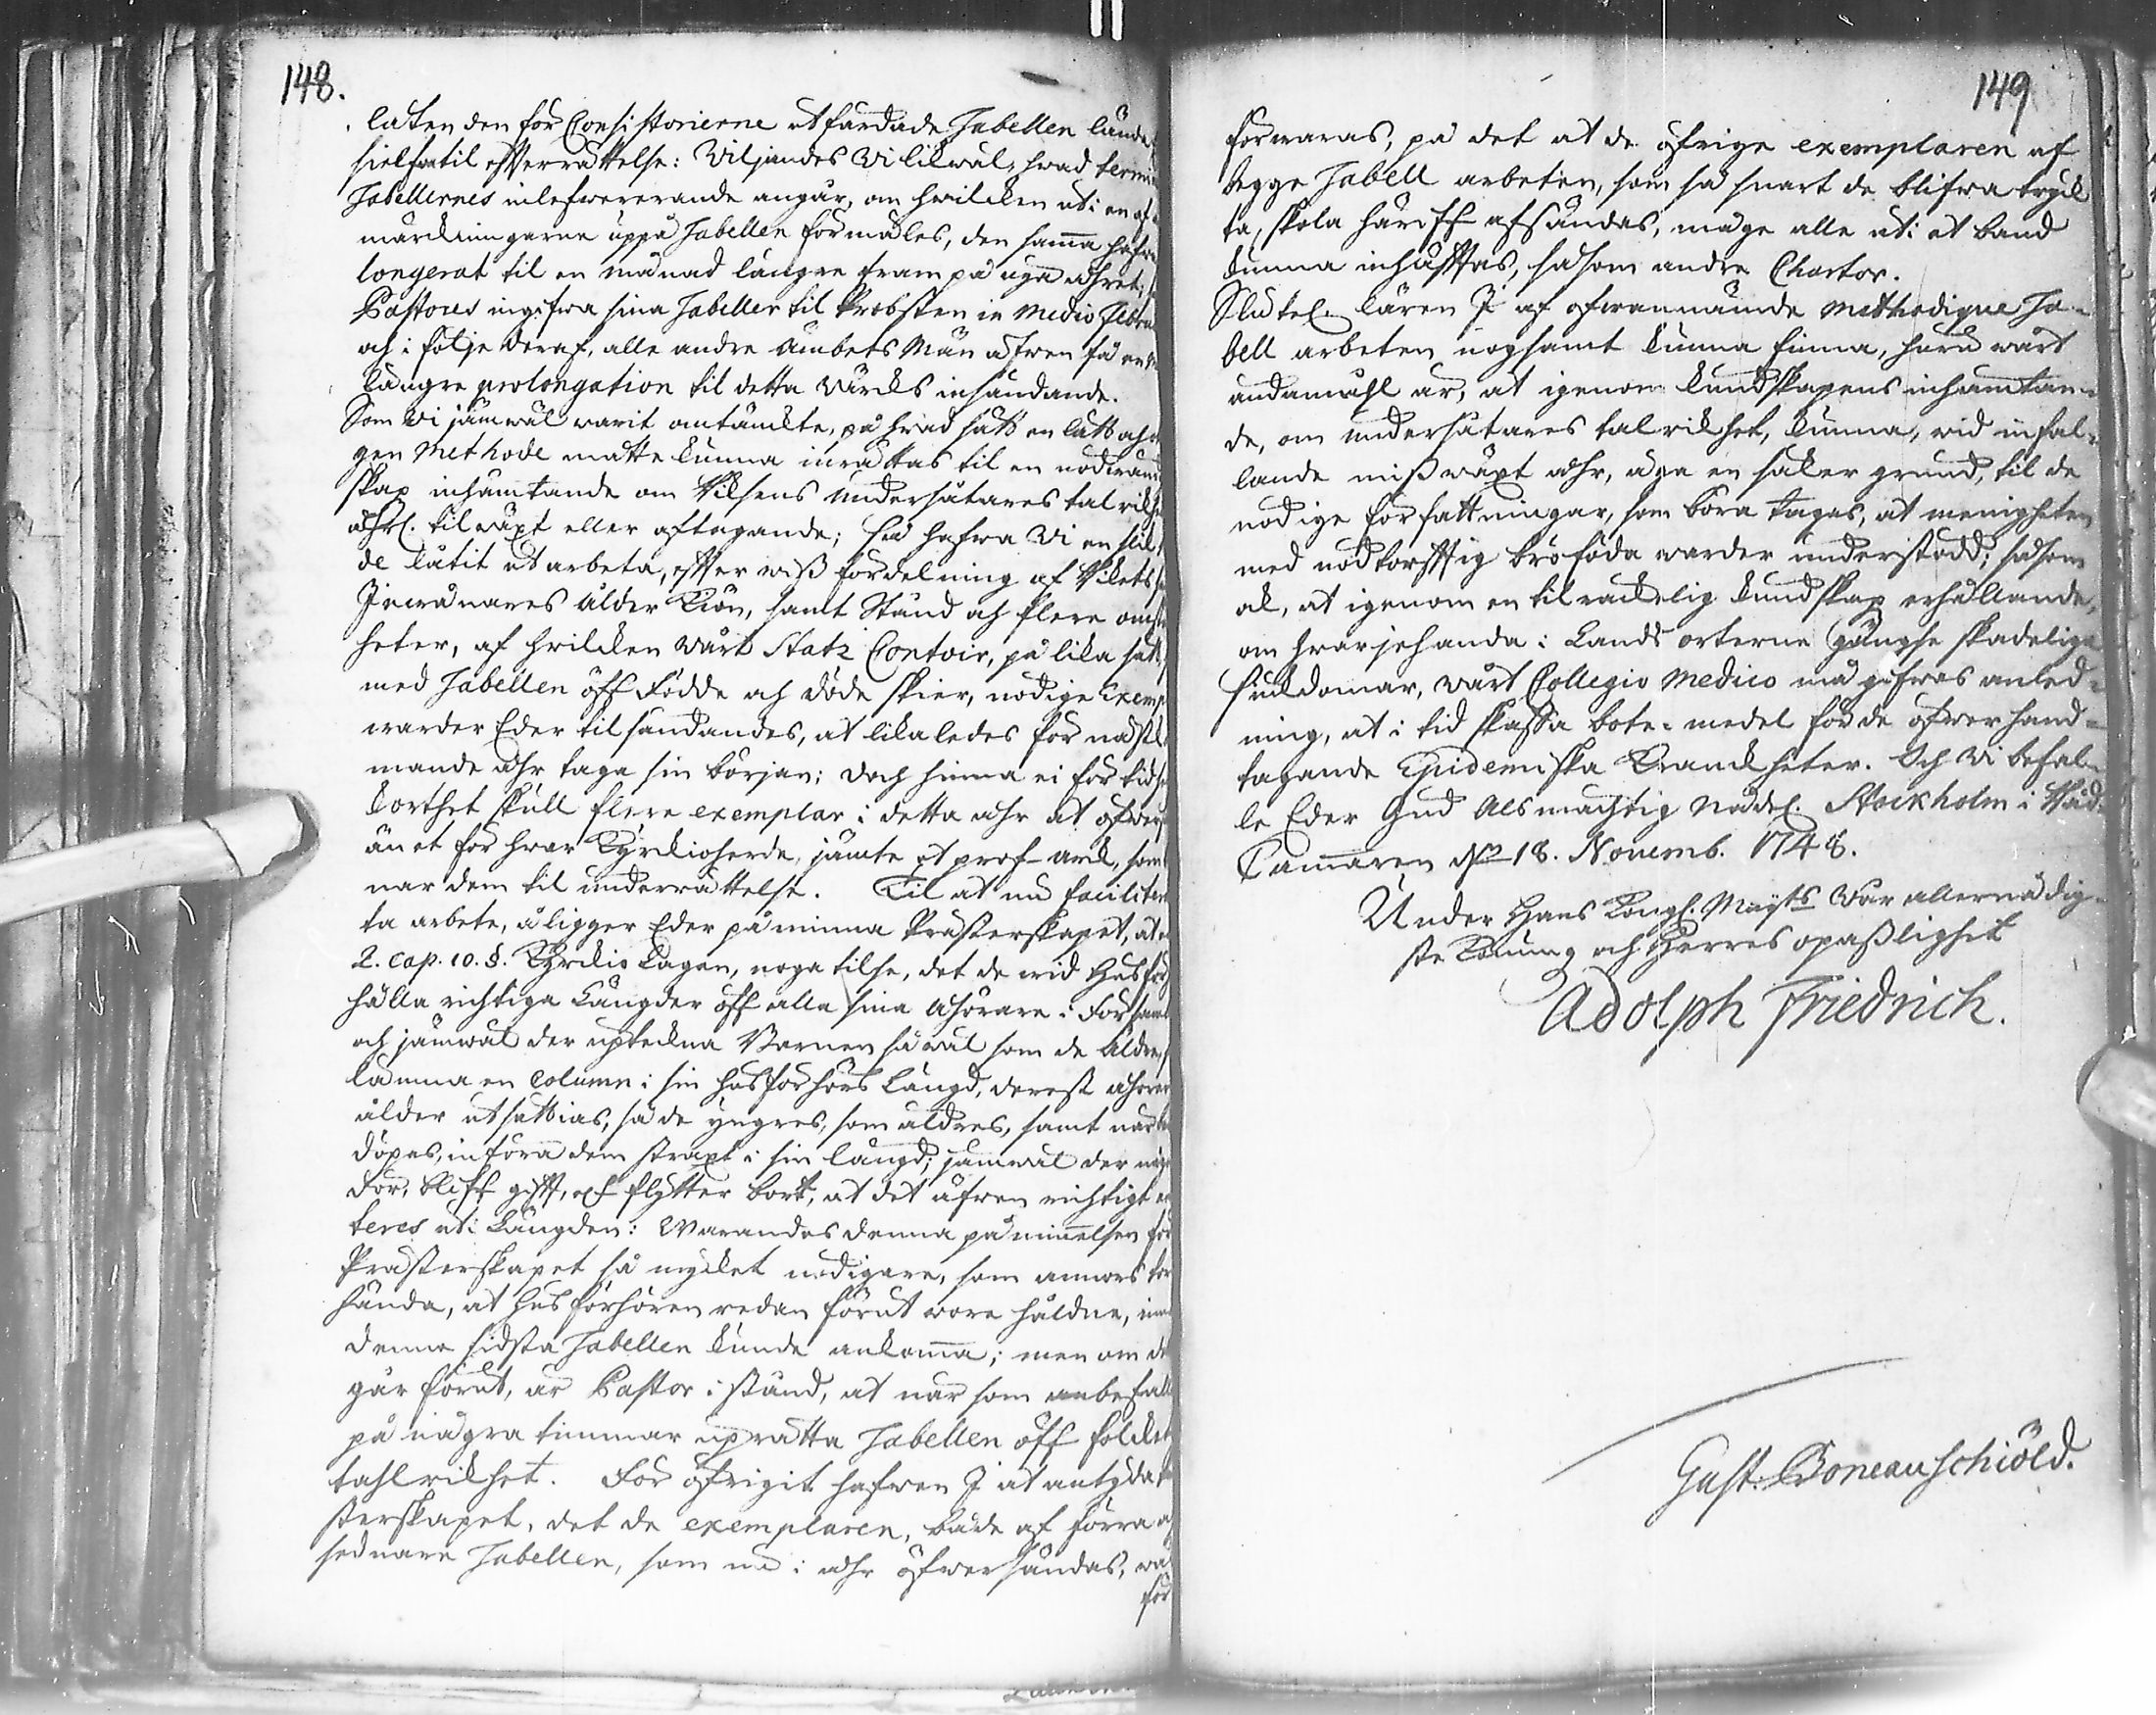 148.
låten den för Consistorierne utfärdade Tabellen lände
sielfva til efterrättelse: Viljandes Vi likwäl, hwad termin
Tabellernes inlefwererande angår, om hwilcken uti en af
märckningarne uppå Tabellen förmäles, den samma hafwa
longerat til en månad längre fram på nya åhret,
Pastores ingifwa sina Tabeller til Probsten in Medio Febru
och i följe deraf, alle andre Ämbets Män äfwen få en
längre prolongation til detta wärcks insändande.
Som Vi jämwäl warit omtänckte, på hwad sätt en lätt och
gen Methode måtte kunna inrättas til en nödwän
skap inhämtande om Riksens undersåtares talrikhe
åhrl. tilwäxt eller aftagande; Så hafwa Vi en slik
de låtit utarbeta, efter wiss fördelning af Rikets
Inwånares ålder Kiön, samt Stånd och flere omstä
heter, af hwilcken wårt Stats Contoir, på lika sätt,
med Tabellen öff Födde och döde skier, nödige Exemp
warder Eder tilsändandes, at likaledes för nästk
mande åhr taga sin början; doch hinna ei för tidse
korthet skull flere exemplar i detta åhr at öfwers
än et för hwar Kyrckioherde, jämte et prof-arck, som
nar dem til underrättelse. Til at nu facilitera
ta arbete, åligger Eder påminna Prästerskapet, at
2. cap. 10. §. Kyrckio Lagen, noga tilse, det de wid Husförh
hålla richtiga Längder öff alla sina åhörare i Försam
och jämwäl der upteckna Barnen så wäl som de Äldre,
lämna en column i sin husförhörs Längd, derest åhörar
ålder utsättias, så de yngres, som äldres, samt när
döpas, införa dem straxt i sin längd; jämwäl der någ
dör, blifr gift, och flytter bort, at det äfwen richtigt
teres uti Längden: Warandes denna påminnelsen för
Prästerskapet så mycket nödigare, som annors tor
hända, at Husförhören redan förut wore håldne, inn
denna sidsta Tabellen kunde ankomma; men om de
går förut, är Pastor i stånd, at när som anbefall
på några timmar uprätta Tabellen öff folckets
tahlrikhet. För öfrigit hafwen I at antyda
sterskapet, det de exemplaren, både af förra
sednare Tabellen, som nu i åhr öfwersändas, wä
för
149
förwaras, på det at de öfrige exemplaren af
begge Tabell arbeten, som så snart de blifwa tryck
ta, skola härifr afsändas, måge alle uti et band
kunna inhäfftas, såsom andre Chartor.
Slutel. lären I af ofwannämnde Methodique Ta-
bell arbeten nogsamt kunna finna, huru wårt
ändamåhl är, at igenom kundskapens inhämtan-
de, om undersåtares talrikhet, kunna, wid infal-
lande misswäxt åhr, äga en säker grund, til de
nödige författningar, som böra tagas, at menigheten
med nödtorfftig brödföda warder understödd; såsom
ock, at igenom en tilräckelig kundskap erhållande,
om hwarjehanda i Lands orterne gängse skadelige
siukdomar, wårt Collegio Medico må gifwas anled-
ning, at i tid skaffa bote-medel för de öfwerhand-
tagande Epidemiska Kranckheter. Och Vi befal-
le Eder Gud Alsmächtig nådel. Stockholm i Råd-
Cammaren dn 18. Novemb. 1748.
Under Hans Kongl. Maijts Wår allernådig-
ste Konung och Herres opasslighet
Adolph Friedrich.
Gust. Boneauschiöld.